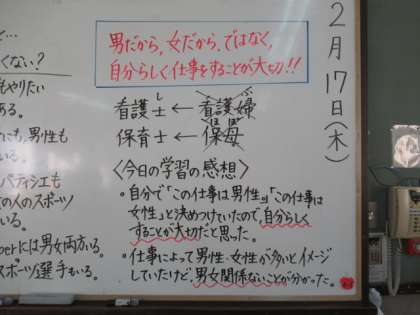 くない?
もやりたい
ある。
にも、男性も
いる。
パティシエも
の人のスポーツ
いる。
には男女両方いる。
スポーツ選手もいる。
男だから、女だから、ではなく、
自分らしく仕事をすることが大切!!
し
看護士←看護婦
ほぼ
保育士←保母
〈今日の学習の感想〉
・自分で「この仕事は男性」「この仕事は
女性」と決めつけていたので、自分らしく
することが大切だと思った。
・仕事によって男性・女性が多いとイメージ
していたけど、男女関係ないことが分かった。
2月17日(木)